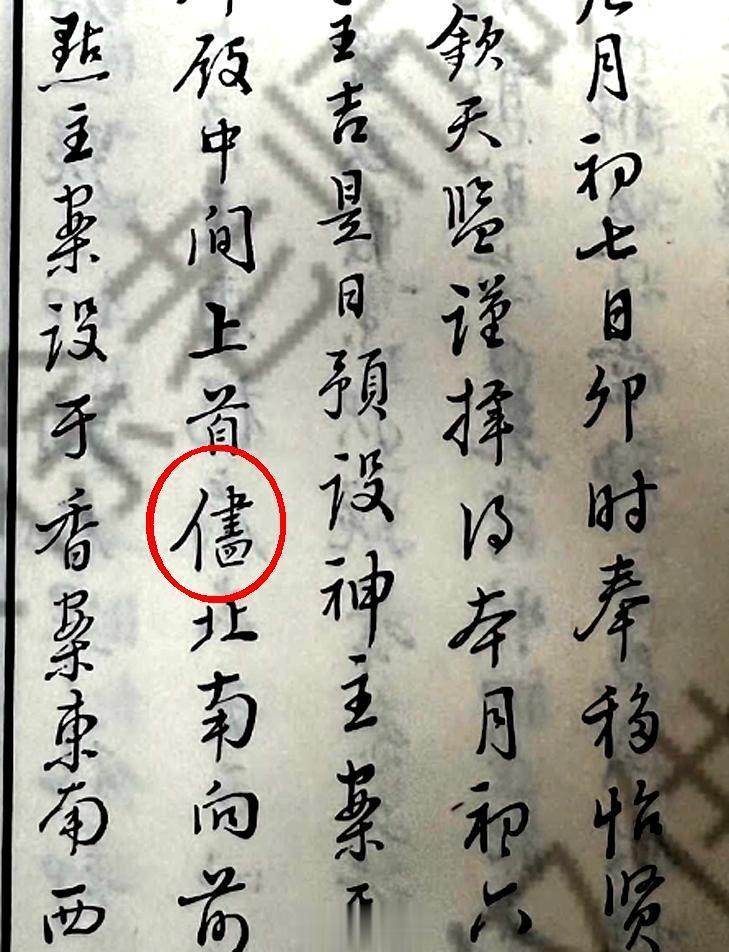 月初七日卯时奉移怡贤
钦天监谨择得本月初六
主吉是日预设神主案
殿中间上首儘北南向前
點主案设于香案东南西